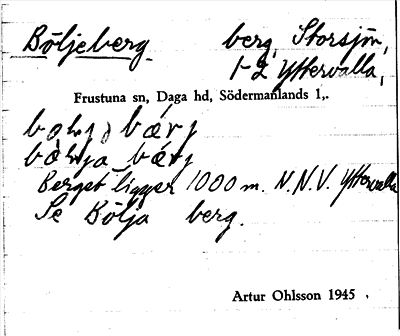 Böljeberg. berg, Storsjön,
1-2 Yttervalla,
Frustuna sn, Daga hd, Södermanlands l,.
bærj
bærj
Berget ligger 1000 m. N.N.V. Yttervalla
Se Bölja berg.
Artur Ohlsson 1945